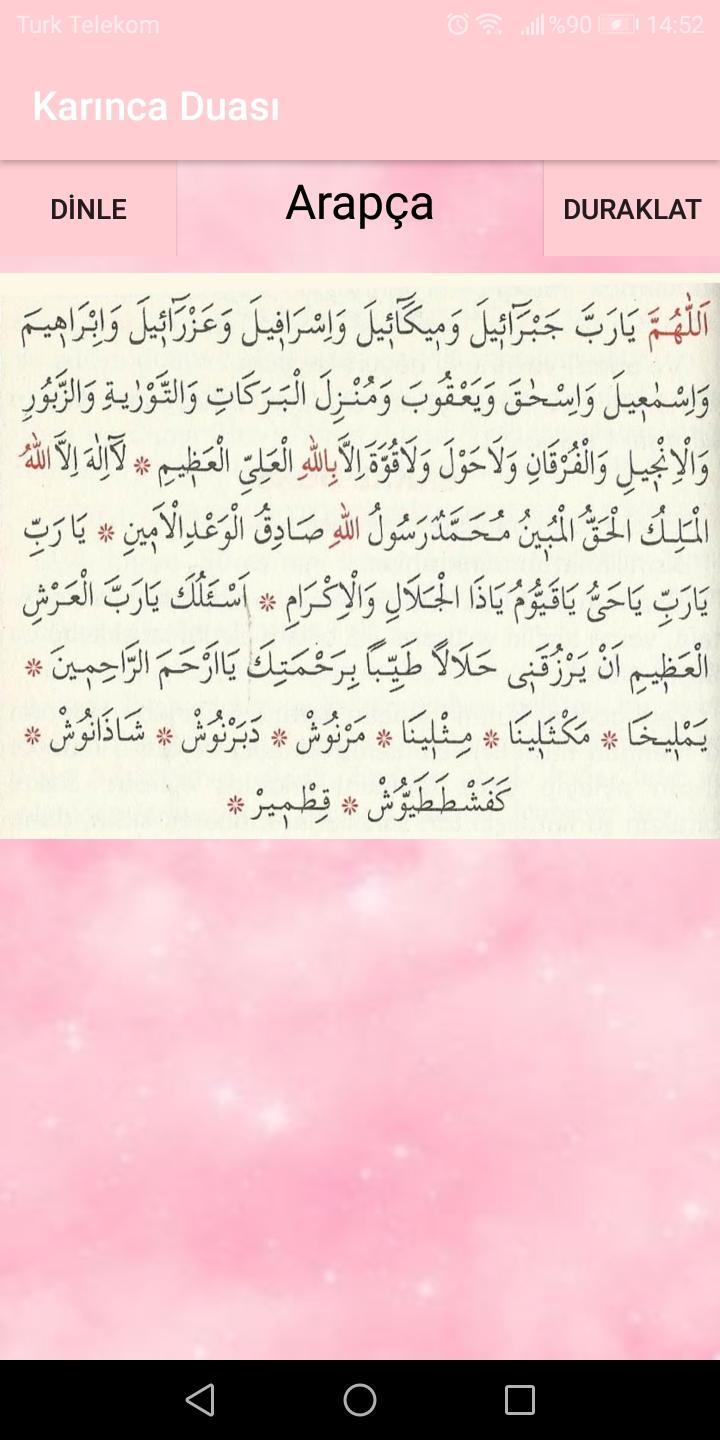 Turk Telekom %90 14:52
Karınca Duası
DİNLE Arapça DURAKLAT
اَللّٰهُمَّ يَارَبَّ جَبْرَٓائِيلَ وَمِيكَٓائِيلَ وَاِسْرَافِيلَ وَعَزْرَٓائِيلَ وَاِبْرَاهِيمَ
وَاِسْمٰعِيلَ وَاِسْحٰقَ وَيَعْقُوبَ وَمُنْزِلَ الْبَرَكَاتِ وَالتَّوْرٰيةِ وَالزَّبُورِ
وَالْاِنْجِيلِ وَالْفُرْقَانِ وَلَاحَوْلَ وَلَاقُوَّةَ اِلَّابِاللهِ الْعَلِيِّ الْعَظِيمِ * لَٓااِلٰهَ اِلَّا اللهُ
الْمَلِكُ الْحَقُّ الْمُبِينُ مُحَمَّدٌرَسُولُ اللهِ صَادِقُ الْوَعْدِالْاَمِينِ * يَا رَبِّ
يَارَبِّ يَاحَيُّ يَاقَيُّومُ يَاذَا الْجَلَالِ وَالْاِكْرَامِ * اَسْئَلُكَ يَارَبَّ الْعَرْشِ
الْعَظِيمِ اَنْ يَرْزُقَنِى حَلَالاً طَيِّباً بِرَحْمَتِكَ يَااَرْحَمَ الرَّاحِمِينَ *
يَمْلِيخَا * مَكْثَلِينَا * مِثْلِينَا * مَرْنُوشْ * دَبَرْنُوشْ * شَاذَانُوشْ *
كَفَشْطَطَيُّوشْ * قِطْمِيرْ *